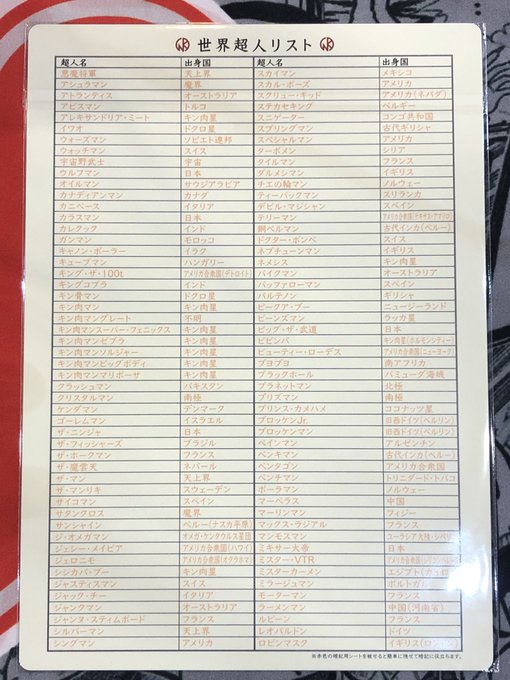 世界超人リスト
超人名 出身国 超人名 出身国
悪魔将軍 天上界 スカイマン メキシコ
アシュラマン 魔界 スカル・ボーズ アメリカ
アトランティス オーストラリア スクリュー・キッド アメリカ(ネバダ)
アビスマン トルコ ステカセキング ベルギー
アレキサンドリア・ミート キン肉星 スニゲーター コンゴ共和国
イワオ ドクロ星 スプリングマン 古代ギリシャ
ウォーズマン ソビエト連邦 スペシャルマン アメリカ
ウォッチマン スイス ターボメン シリア
宇宙野武士 宇宙 タイルマン フランス
ウルフマン 日本 ダルメシマン イギリス
オイルマン サウジアラビア チエの輪マン ノルウェー
カナディアンマン カナダ ティーパックマン スリランカ
カニベース イタリア デビル・マジシャン スペイン
カラスマン 日本 テリーマン アメリカ合衆国(テキサス・アマリロ)
カレクック インド 銅ベルマン 古代インカ(ペルー)
ガンマン モロッコ ドクター・ボンベ スイス
キャノン・ボーラー イラク ネプチューンマン イギリス
キューブマン ハンガリー ネメシス キン肉星
キング・ザ・100t アメリカ合衆国(デトロイト) バイクマン オーストラリア
キングコブラ インド バッファローマン スペイン
キン骨マン ドクロ星 パルテノン ギリシャ
キン肉マン キン肉星 ピークア・ブー ニュージーランド
キン肉マングレート 不明 ビーンズマン ラッカ星
キン肉マンスーパー・フェニックス キン肉星 ビッグ・ザ・武道 日本
キン肉マンゼブラ キン肉星 ビビンバ キン肉星(ホルモンシティー)
キン肉マンソルジャー キン肉星 ビューティー・ローデス アメリカ合衆国(ニューヨーク)
キン肉マンビッグボディ キン肉星 プヨプヨ 南アフリカ
キン肉マンマリポーサ キン肉星 ブラックホール バミューダ海域
クラッシュマン パキスタン プラネットマン 北極
クリスタルマン 南極 プリズマン 南極
ケンダマン デンマーク プリンス・カメハメ ココナッツ星
ゴーレムマン イスラエル ブロッケンJr. 旧西ドイツ(ベルリン)
ザ・ニンジャ 日本 ブロッケンマン 旧西ドイツ(ベルリン)
ザ・フィッシャーズ ブラジル ペインマン アルゼンチン
ザ・ホークマン フランス ペンキマン 古代インカ(ペルー)
ザ・魔雲天 ネパール ペンタゴン アメリカ合衆国
ザ・マン 天上界 ベンチマン トリニダード・トバコ
ザ・マンリキ スウェーデン ボーラマン ノルウェー
サイコマン スペイン マーベラス 中国
サタンクロス 魔界 マーリンマン フィジー
サンシャイン ペルー(ナスカ平原) マックス・ラジアル フランス
ジ・オメガマン オメガ・ケンタウルス星団 マンモスマン
ジェシー・メイビア アメリカ合衆国(ハワイ) ミキサー大帝 日本
ジェロニモ アメリカ合衆国(オクラホマ) ミスター・VTR
シシカバ・ブー キン肉星 ミスターカーメン
ジャスティスマン スイス ミラージュマン ポルトガル
ジャック・チー イタリア モーターマン フランス
ジャンクマン オーストラリア ラーメンマン 中国(河南省)
ジャンヌ・スティムボード フランス ルピーン フランス
シルバーマン 天上界 レオパルドン ドイツ
シングマン アメリカ ロビンマスク イギリス(ロンドン)
※赤色の暗記用シートを被せると簡単に残せて暗記に役立ちます。